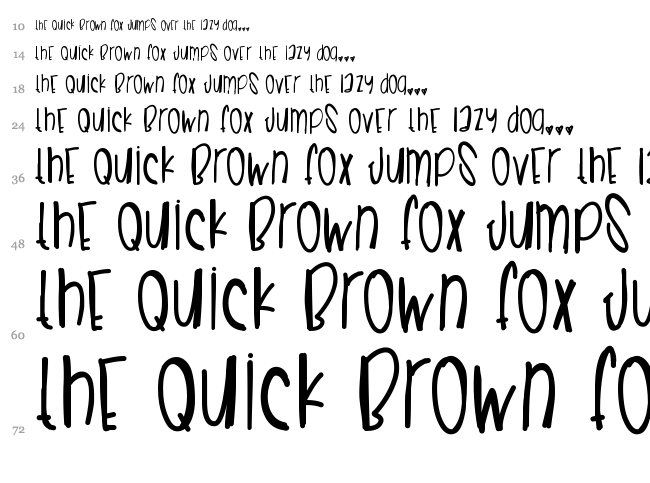 10 the quick brown fox jumps over the lazy dog...
14 the quick brown fox jumps over the lazy dog...
18 the quick brown fox jumps over the lazy dog...
24 the quick brown fox jumps over the lazy dog...
36 the quick brown fox jumps over the l
48 the quick brown fox jumps
60 the quick brown fox ju
72 the quick brown fo